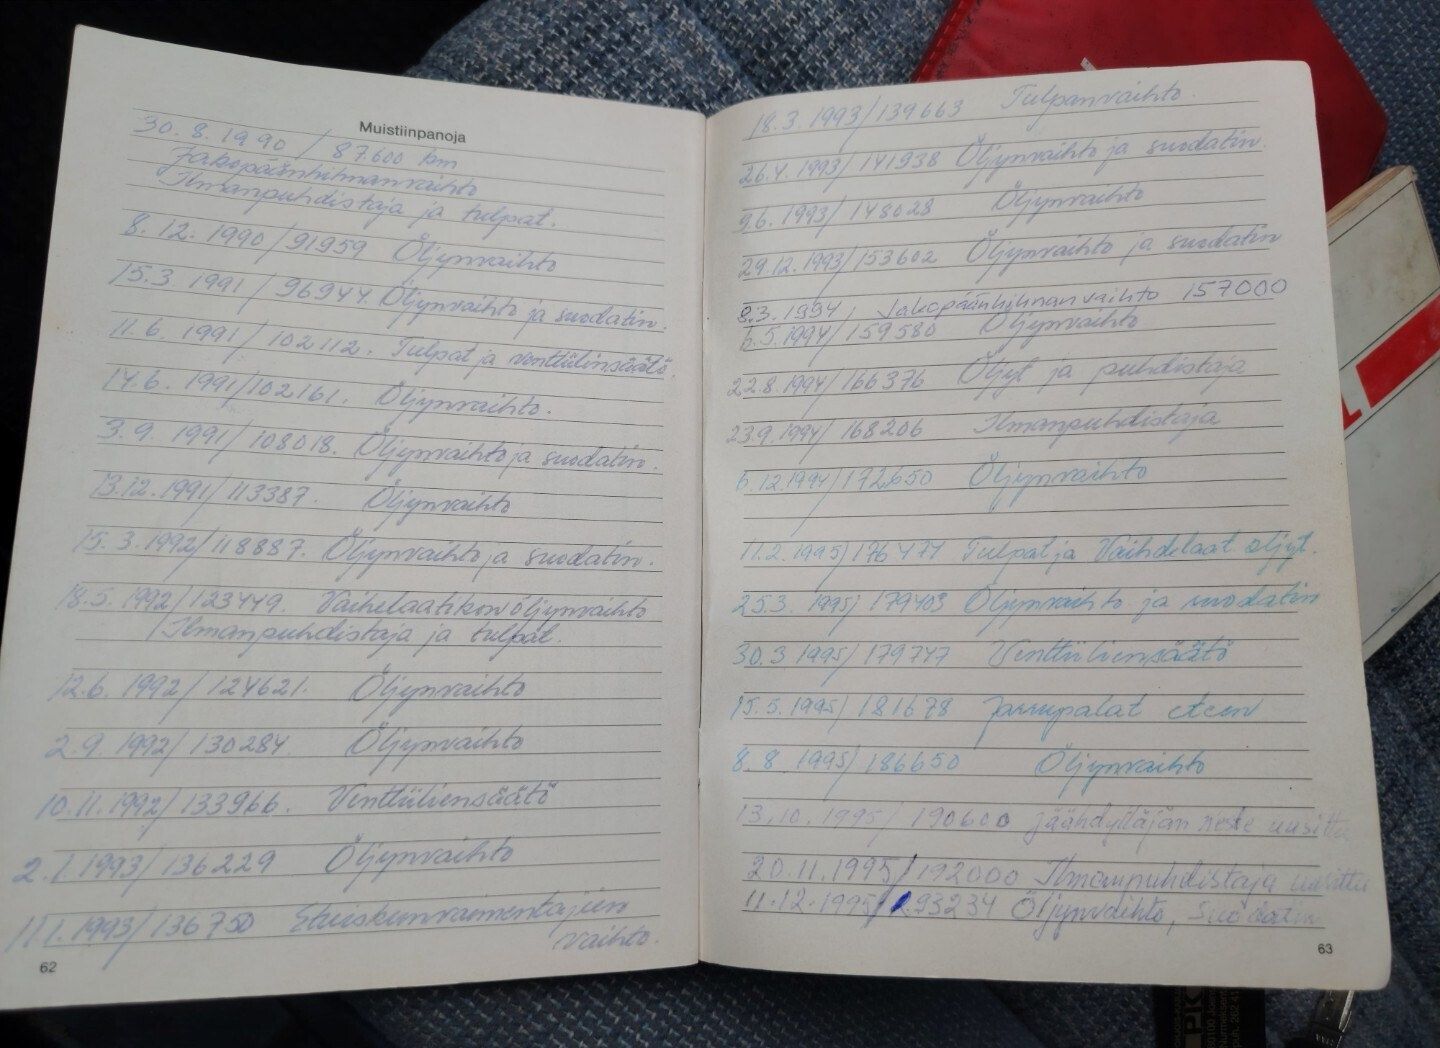 Muistiinpanoja
30.8.1990 / 87.600 km
Jakopäänhihnanvaihto
Ilmanpuhdistaja ja tulpat.
8.12.1990/91959 Öljynvaihto
15.3 1991/96944. Öljynvaihto ja suodatin.
11.6. 1991/102112. Tulpat ja venttiilinsäätö.
14.6. 1991/102161. Öljynvaihto.
3.9. 1991/108018. Öljynvaihto ja suodatin.
13.12.1991/113387. Öljynvaihto
15.3.1992/118887. Öljynvaihto ja suodatin.
18.5.1992/123449. Vaihelaatikon öljynvaihto
/Ilmanpuhdistaja ja tulpat.
12.6.1992/124621. Öljynvaihto
2.9.1992/130284. Öljynvaihto
10.11.1992/133966. Venttiiliensäätö
2.1.1993/136229 Öljynvaihto
11.1.1993/136750 Etuiskunvaimentajien
vaihto.
62
18.3.1993/139663 Tulpanvaihto.
26.4.1993/141938 Öljynvaihto ja suodatin.
9.6.1993/148028 Öljynvaihto
29.12.1993/153602 Öljynvaihto ja suodatin
8.3.1994, Jakopäänhihnan vaihto 157000
6.5.1994/159580 Öljynvaihto
22.8.1994/166376 Öljyt ja puhdistaja
23.9.1994/168206 Ilmanpuhdistaja
6.12.1994/172650 Öljynvaihto
11.2.1995/176471 Tulpat ja Vaihdelaat. öljyt.
25.3.1995/179403 Öljynvaihto ja suodatin
30.3 1995/179747 Venttiiliensäätö
15.5.1995/181678 Jarrupalat eteen
8.8 1995/186650 Öljynvaihto
13.10.1995/190600 jäähdyttäjän neste uusittu
20.11.1995/192000 Ilmanpuhdistaja uusittu
11.12.1995/193234 Öljynvaihto, suodatin
63